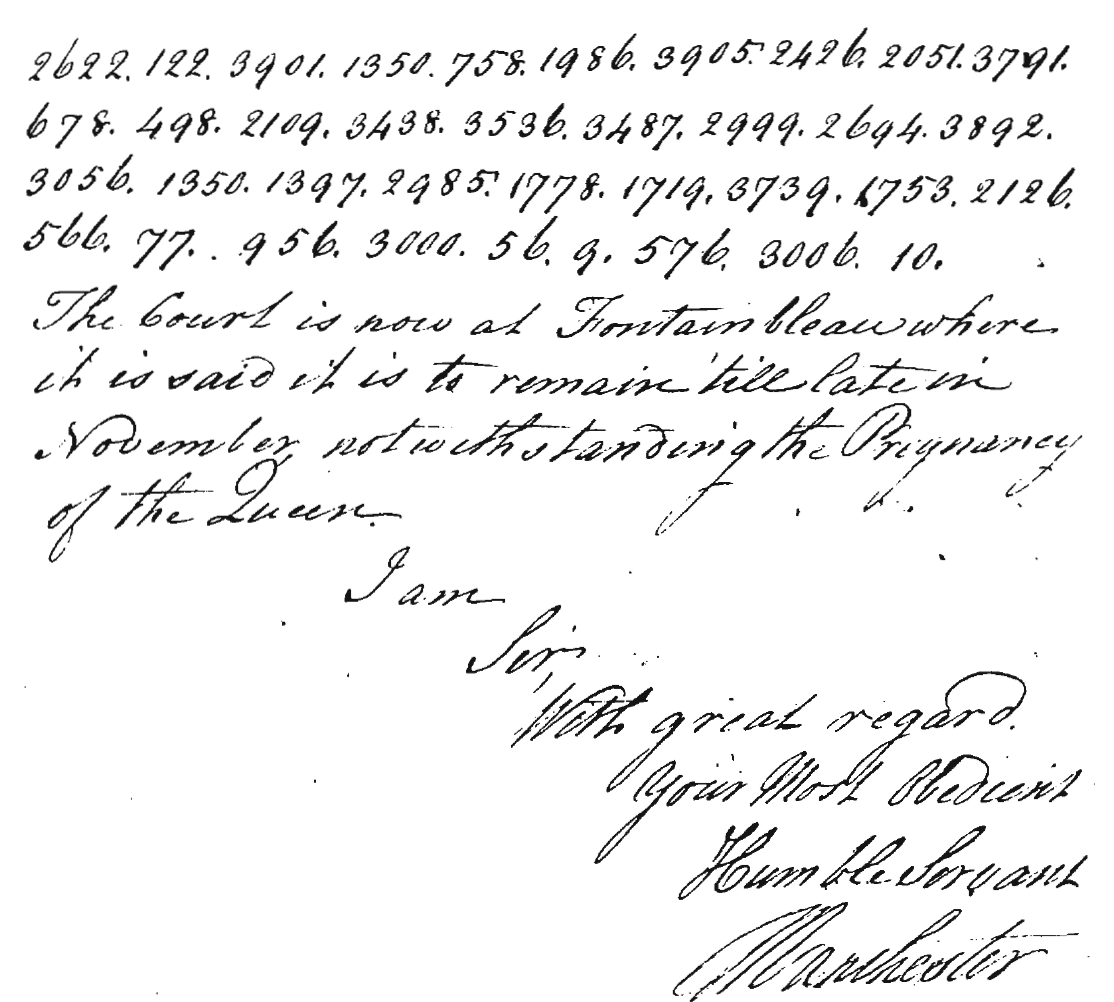 2622. 122. 3901. 1350. 758. 1986. 3905. 2426. 2051. 3791.
678. 498. 2109. 3438. 3536. 3487. 2999. 2694. 3892.
3056. 1350. 1397. 2985. 1778. 1719. 3739. 1753. 2126.
566. 77. . 956. 3000. 56. 9. 576. 3006. 10.
The Court is now at Fontainbleau where
it is said it is to remain 'till late in
November, notwithstanding the Pregnancy
of the Queen.
I am
Sir,
With great regard.
Your Most Obedient
Humble Servant
Manchester